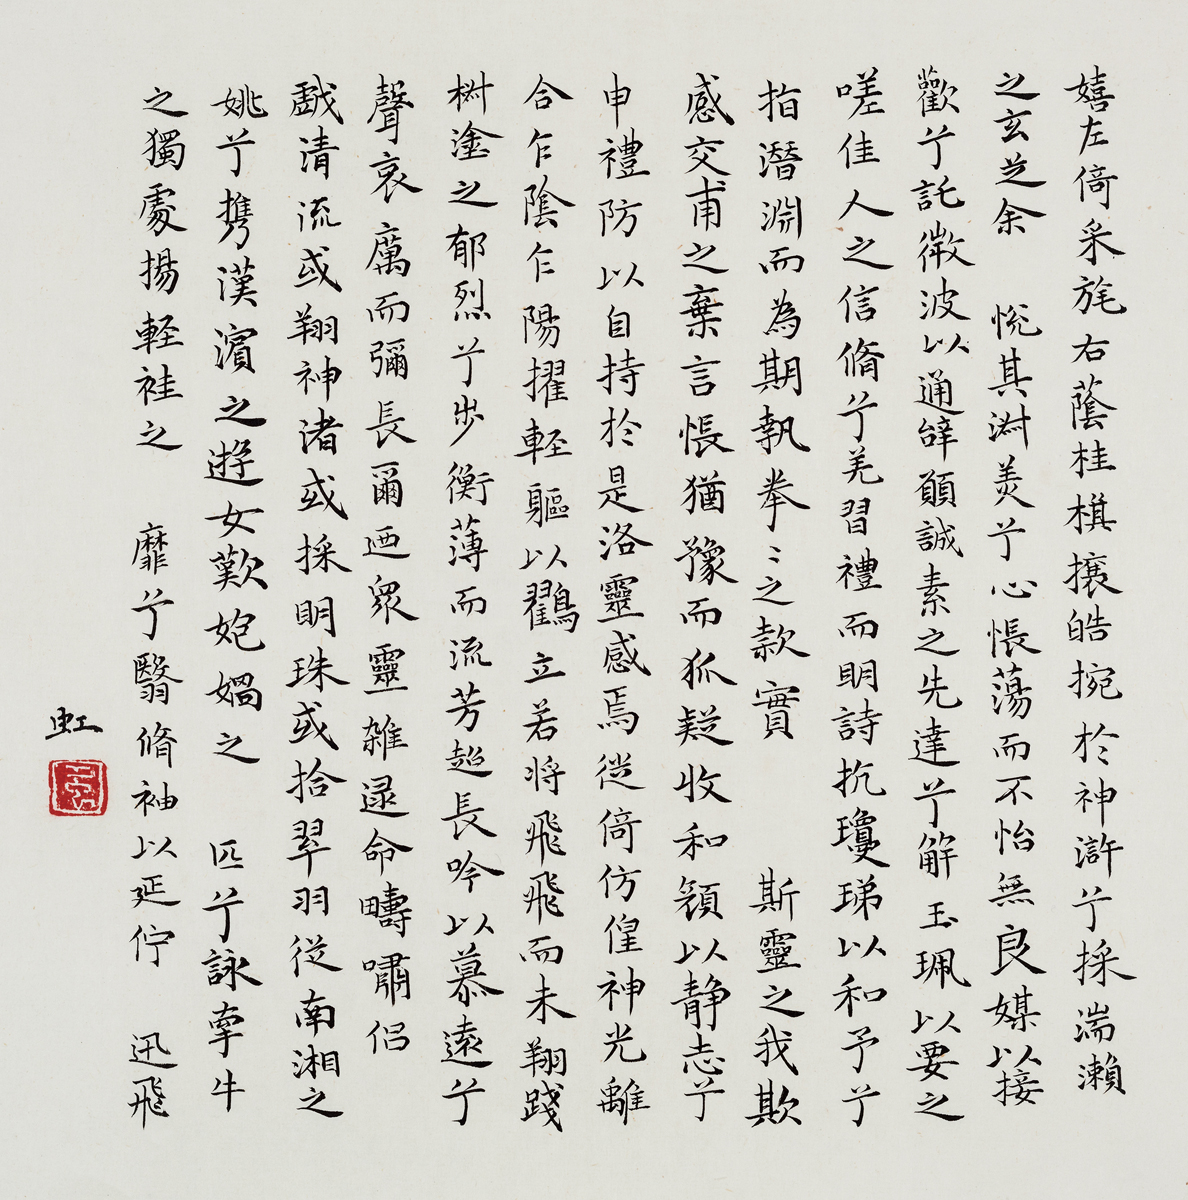 嬉左倚采旄右蔭桂棋攘皓捥於神滸兮採湍瀨
之玄芝余 悦其淑美兮心悵蕩而不怡無良媒以接
歡兮託微波以通辝願誠素之先達兮解玉珮以要之
嗟佳人之信脩兮羌習禮而明詩抗瓊珶以和予兮
指潛淵而為期執拳〻之款實 斯靈之我欺
感交甫之棄言悵猶豫而狐疑收和顏以静志兮
申禮防以自持於是洛靈感焉從倚仿偟神光離
合乍陰乍陽擢軽軀以鸖立若将飛飛而未翔踐
樹塗之郁烈兮步衡薄而流芳超長吟以慕遠兮
聲哀厲而彌長爾迺眾靈雑遝命疇嘯侶
戯清流或翔神渚或採明珠或拾翠羽從南湘之
姚兮携漢濱之遊女歎匏媧之 匹兮詠牽牛
之獨處揚軽袿之 靡兮翳脩袖以延佇 迅飛
虹